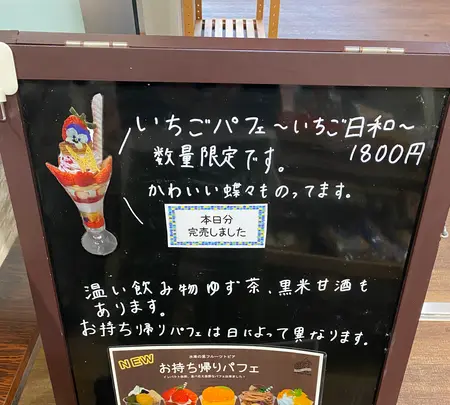 いちごパフェ～いちご日和～
数量限定です。 1800円
かわいい蝶々ものってます。
本日分
完売しました
温い飲み物ゆず茶、黒米甘酒も
あります。
お持ち帰りパフェは日によって異なります。
NEW
お持ち帰りパフェ